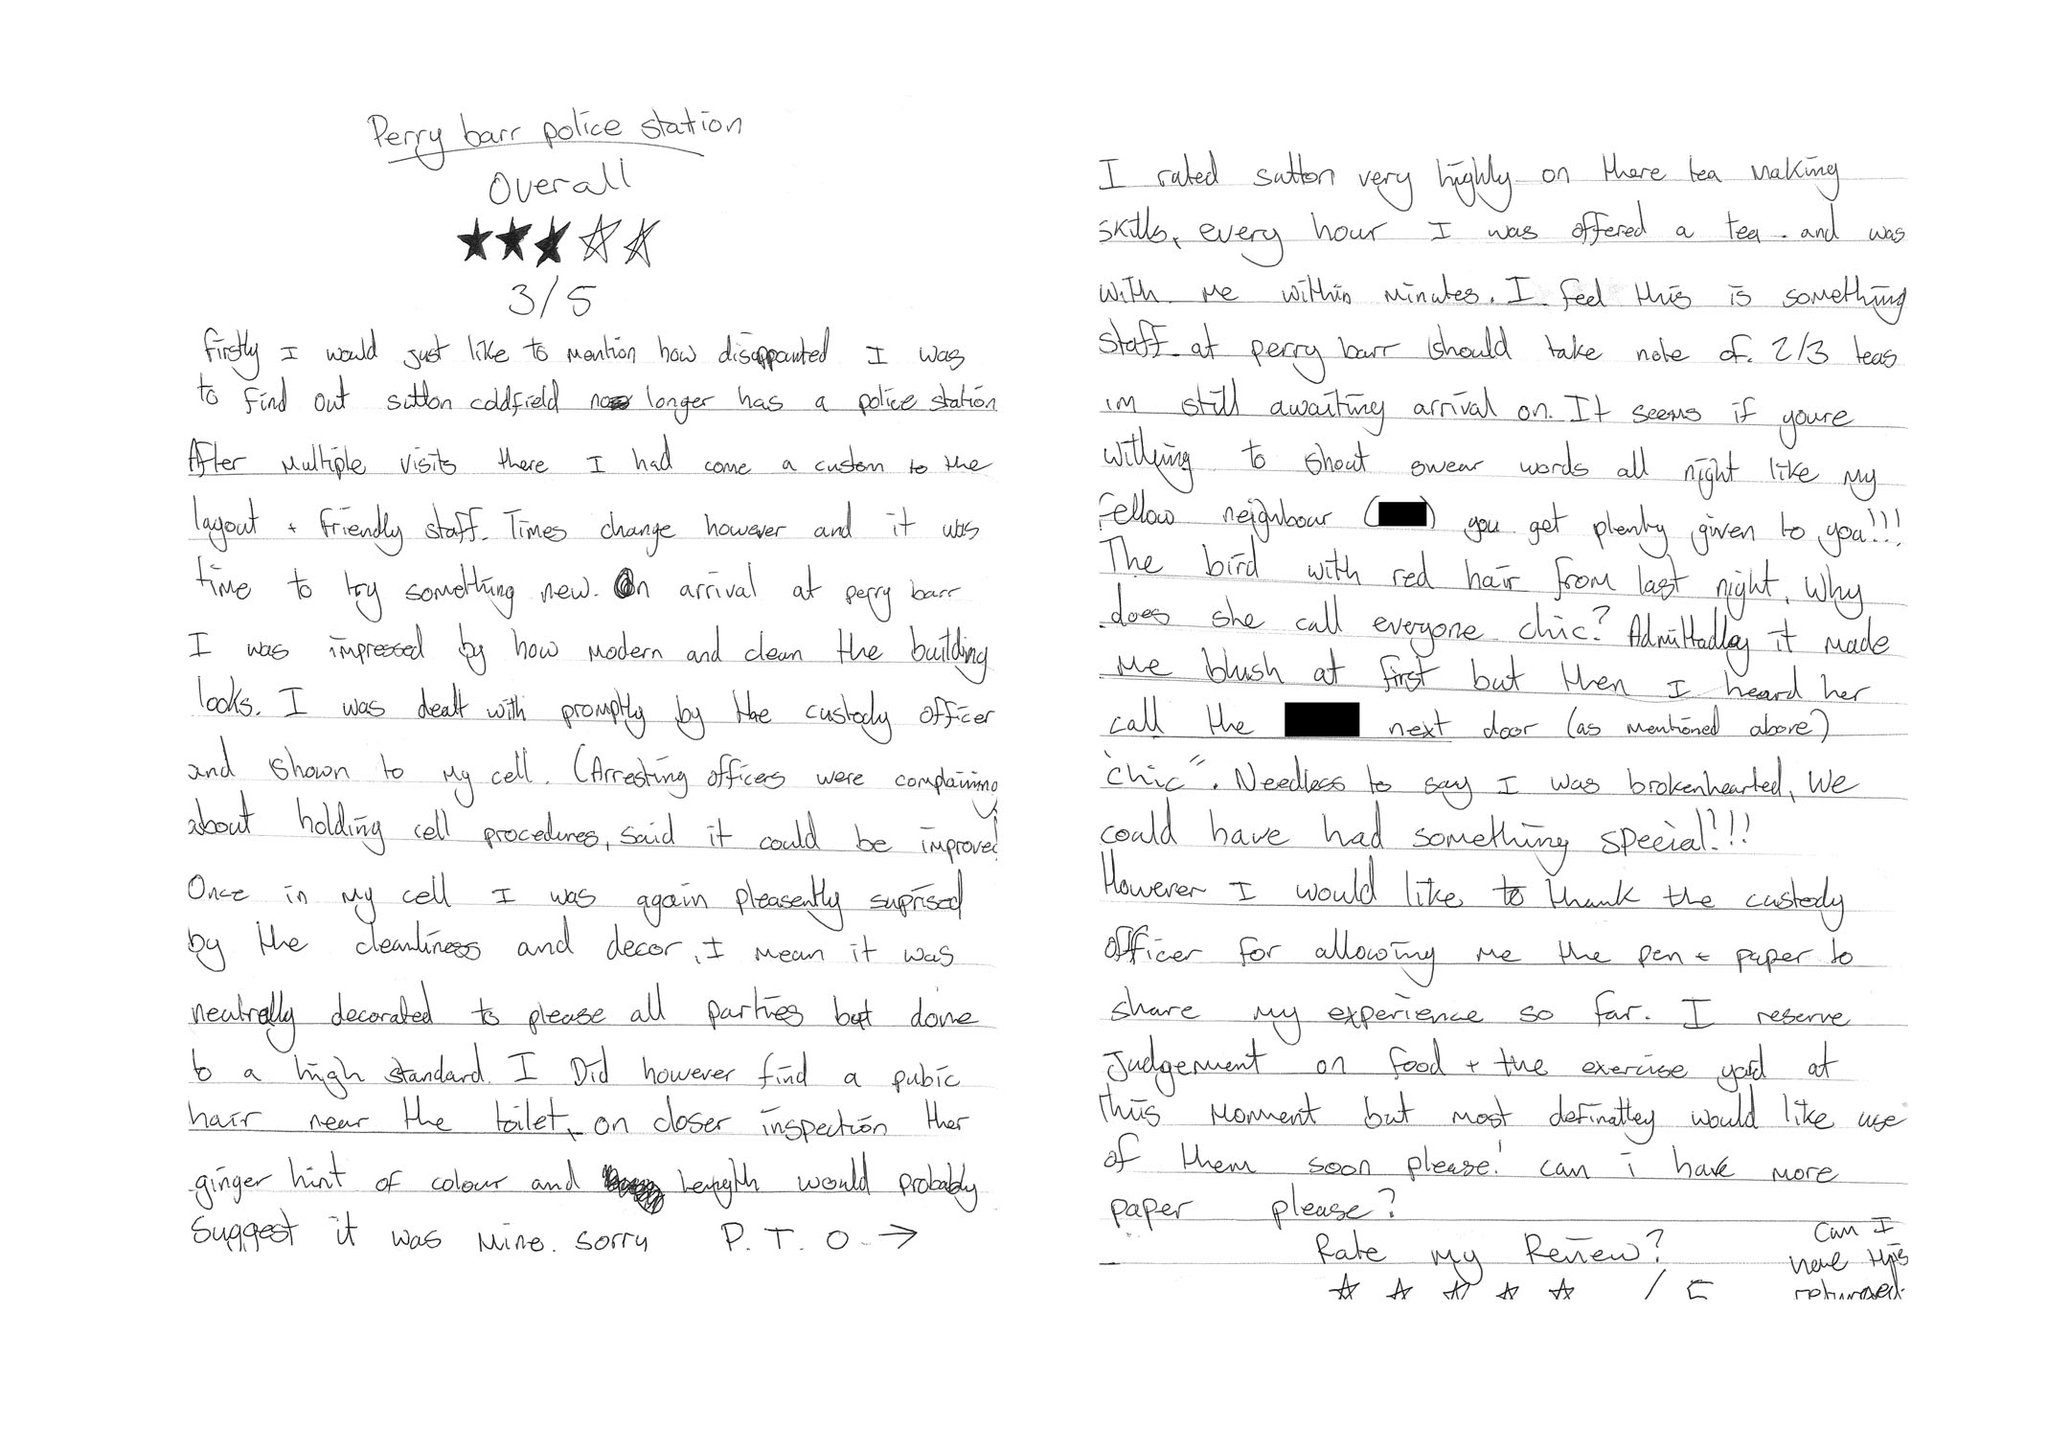 Perry barr police station
Overall
3/5
firstly I would just like to mention how disappanted I was
to find out sutton coldfield no longer has a police station
After multiple visits there I had come a custom to the
layout + friendly staff. Times change however and it was
time to try something new. On arrival at perry barr
I was impressed by how modern and clean the building
looks. I was dealt with promptly by the custody officer
and shown to my cell. (Arresting officers were complaining
about holding cell procedures, said it could be improved
Once in my cell I was again pleasently suprised
by the cleanliness and decor, I mean it was
neutrally decorated to please all parties but done
to a high standard. I Did however find a pubic
hair near the toilet, on closer inspection ther
ginger hint of colour and length would probably
suggest it was mine. sorry P.T.O →
I rated sutton very highly on there tea making
skills, every hour I was offered a tea and was
with me within minutes. I feel this is something
staff at perry barr should take note of. 2/3 teas
im still awaiting arrival on. It seems if youre
willing to shout swear words all night like my
fellow neighbour ( ) you get plenty given to you!!!
The bird with red hair from last night. Why
does she call everyone chic? Admittadley it made
me blush at first but then I heard her
call the next door (as mentioned above)
"chic". Needless to say I was brokenhearted, We
could have had something special!!!
However I would like to thank the custody
officer for allowing me the pen + paper to
share my experience so far. I reserve
judgement on food + the exercise yard at
this moment but most definatley would like use
of them soon please! can i have more
paper please?
Rate my Review?
/ 5
Can I
have this
returned.